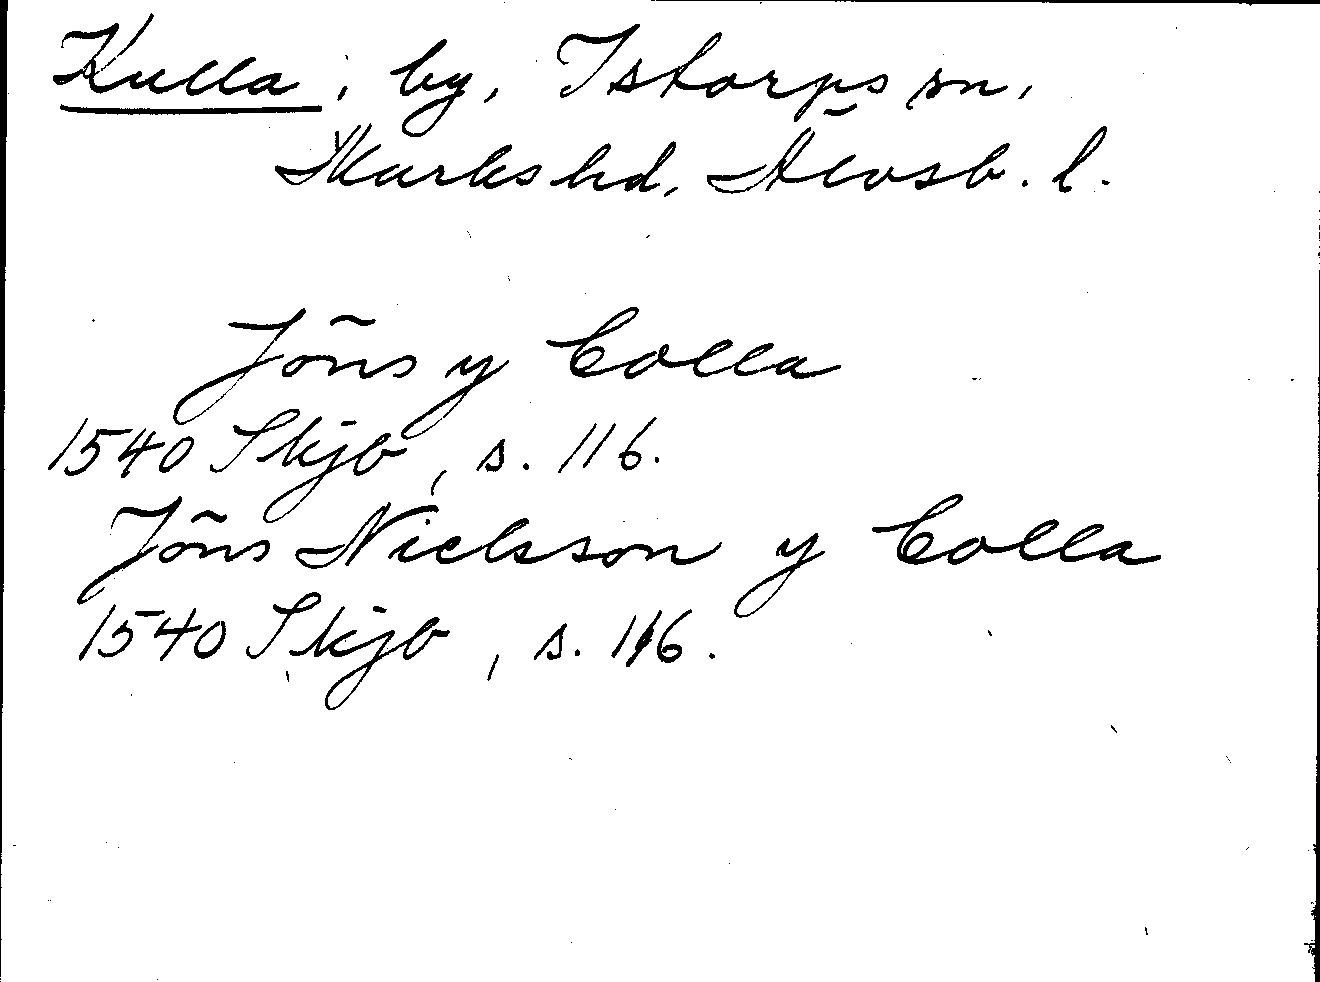 Kulla, by, Istorps sn,
Marks hd, Älvsb. l.
Jõns y Colla
1540 Skjb, s. 116.
Jõns Nielsson y Colla
1540 Skjb, s. 116.